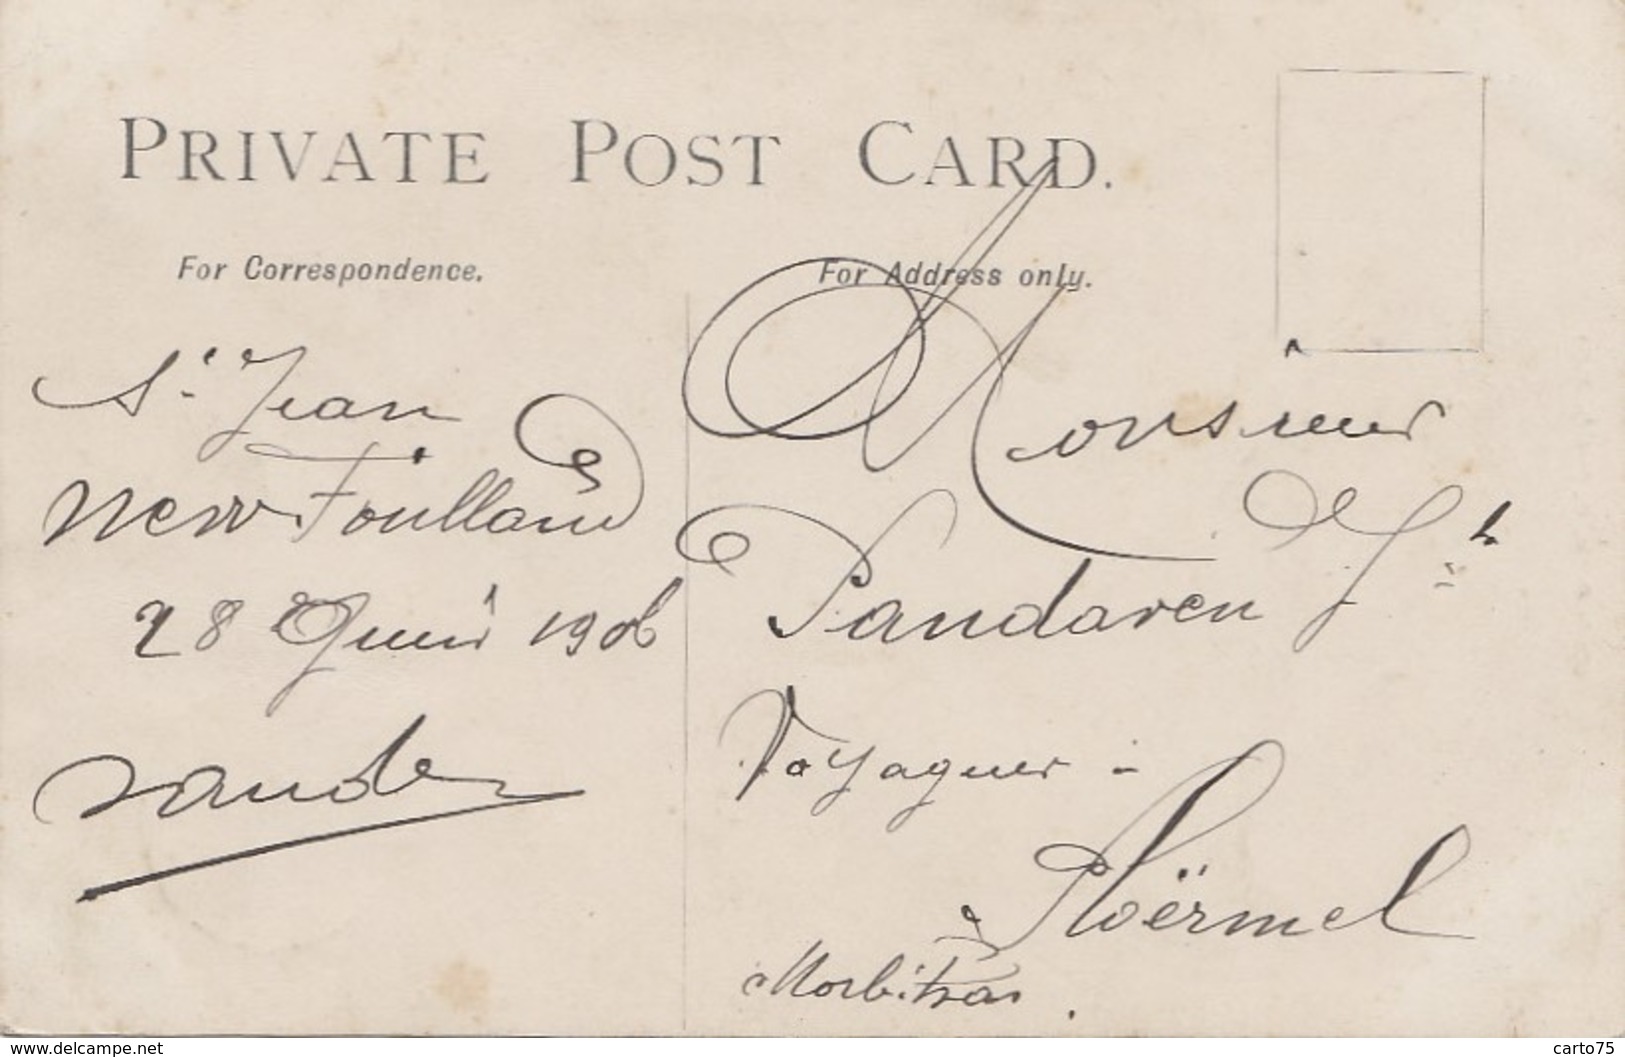 PRIVATE POST CARD.
For Correspondence.
For Address only.
St Jean
New Foulland
28 Juin 1906
Monsieur
Pandaven Jh
Voyageur -
à Ploërmel
Morbihan.
www.delcampe.net
carto75